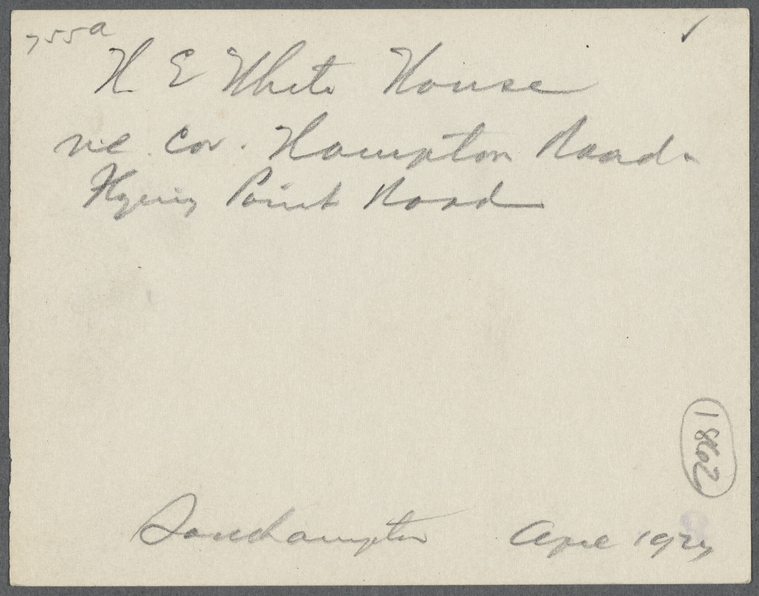 755a
H E White House
ne cor. Hampton Road
Flying Point Road
1862
Southampton April 192